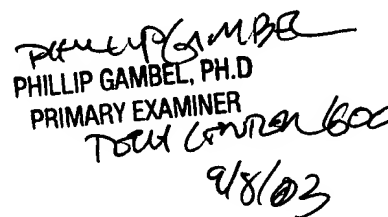 PHILLIP GAMBEL
PHILLIP GAMBEL, PH.D
PRIMARY EXAMINER
TECH CENTER 1600
9/8/03